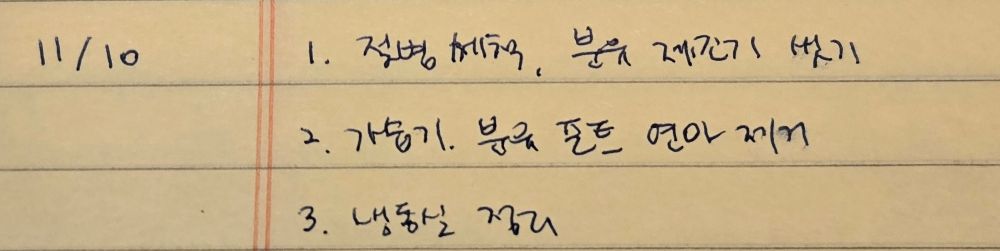 11/10 1. 젖병 세척, 분유 제조기 씻기
2. 가습기. 분유 포트 연마 제거
3. 냉동실 정리